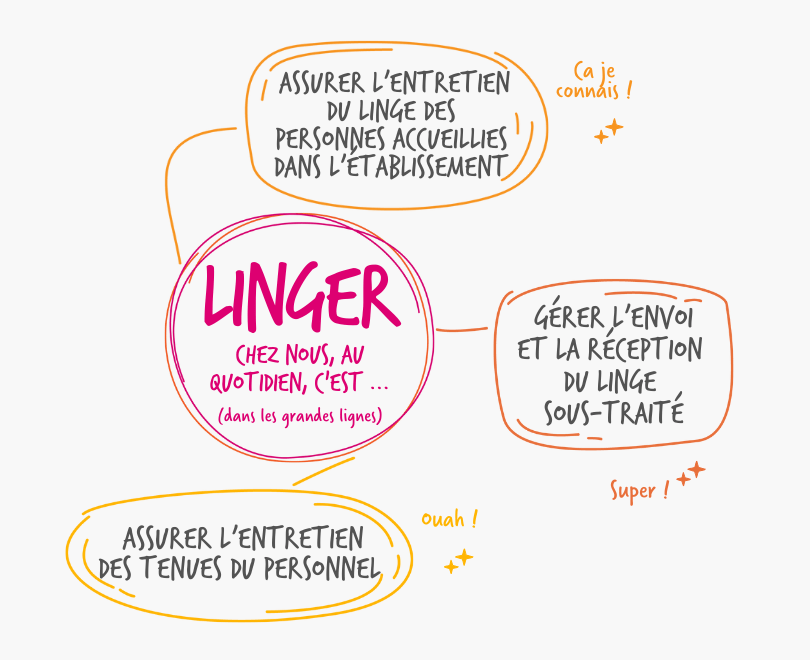 ASSURER L'ENTRETIEN
DU LINGE DES
PERSONNES ACCUEILLIES
DANS L'ÉTABLISSEMENT
Ca je
connais !
LINGER
CHEZ NOUS, AU
QUOTIDIEN, C'EST ...
(dans les grandes lignes)
GÉRER L'ENVOI
ET LA RÉCEPTION
DU LINGE
SOUS-TRAITÉ
Super !
Ouah !
ASSURER L'ENTRETIEN
DES TENUES DU PERSONNEL